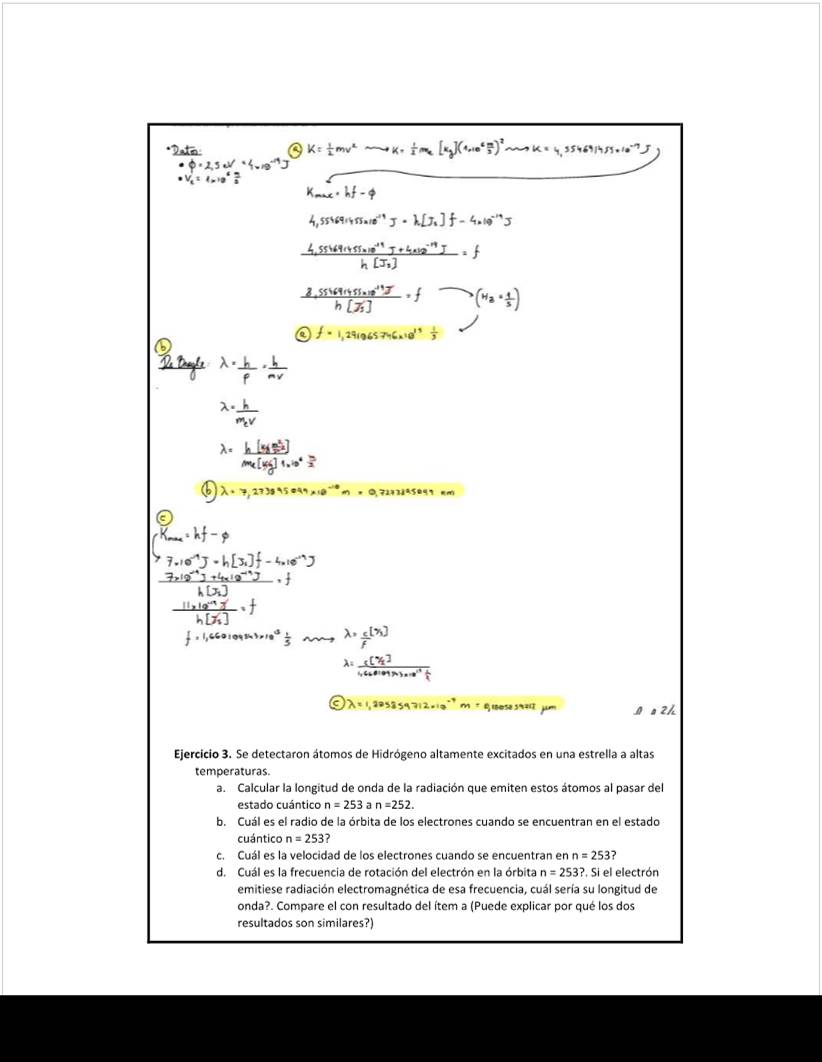 •Datos:
• φ = 2,5 eV = 4×10⁻¹⁹ J
• Vₑ = 1×10⁶ m/s
ⓐ K = ½mv² ⟿ K = ½ mₑ [kg](1×10⁶ m/s)² ⟿ K = 4,554691455×10⁻¹⁹ J
Kmax = hf - φ
4,554691455×10⁻¹⁹ J = h[Js] f - 4×10⁻¹⁹ J
(4,554691455×10⁻¹⁹ J + 4×10⁻¹⁹ J) / h [Js] = f
(8,554691455×10⁻¹⁹ J) / h [Js] = f → (Hz = 1/s)
ⓐ f = 1,291065746×10¹⁵ 1/s
ⓑ
De Broglie: λ = h/p = h/mv
λ = h/mₑv
λ = h [kg m²/s] / mₑ[kg] 1×10⁶ m/s
ⓑ λ = 7,273895099×10⁻¹⁰ m = 0,7273895099 nm
ⓒ
Kmax = hf - φ
7×10⁻¹⁹ J = h[Js] f - 4×10⁻¹⁹ J
(7×10⁻¹⁹ J + 4×10⁻¹⁹ J) / h [Js] = f
11×10⁻¹⁹ J / h[Js] = f
f = 1,660109343×10¹⁵ 1/s ⟿ λ = c[m/s] / f
λ = c[m/s] / 1,660109343×10¹⁵ 1/s
ⓒ λ = 1,805859712×10⁻⁷ m = 0,1805859712 μm
Ejercicio 3. Se detectaron átomos de Hidrógeno altamente excitados en una estrella a altas
temperaturas.
a. Calcular la longitud de onda de la radiación que emiten estos átomos al pasar del
estado cuántico n = 253 a n =252.
b. Cuál es el radio de la órbita de los electrones cuando se encuentran en el estado
cuántico n = 253?
c. Cuál es la velocidad de los electrones cuando se encuentran en n = 253?
d. Cuál es la frecuencia de rotación del electrón en la órbita n = 253?. Si el electrón
emitiese radiación electromagnética de esa frecuencia, cuál sería su longitud de
onda?. Compare el con resultado del ítem a (Puede explicar por qué los dos
resultados son similares?)